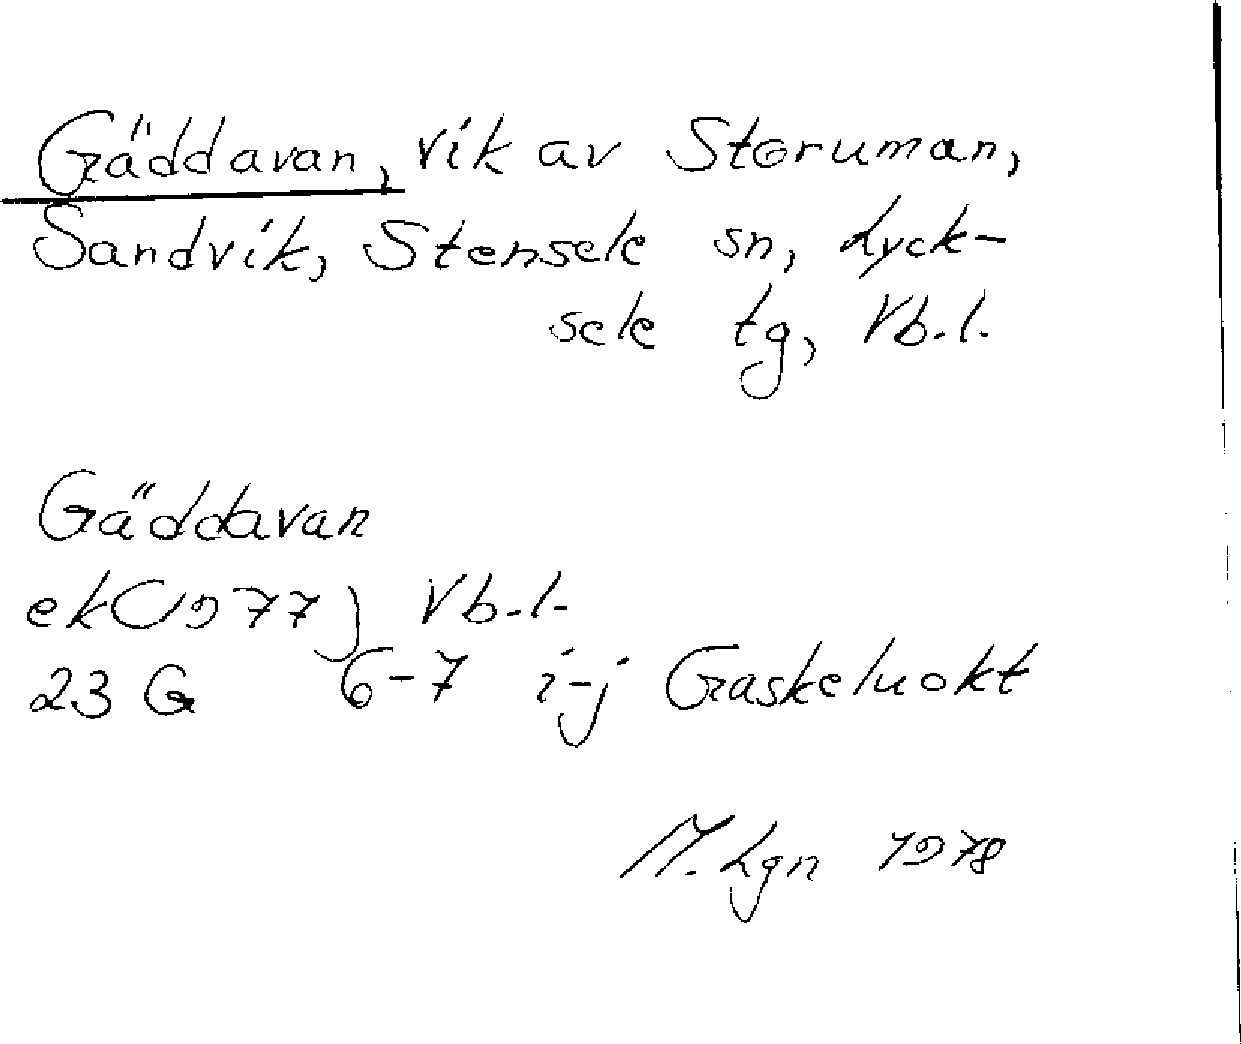 Gäddavan, vik av Storuman,
Sandvik, Stensele sn, Lyck-
sele tg, Vb.l.
Gäddavan
ek(1977) Vb.l.
23 G 6-7 i-j Gaskeluokt
M. Lgn 1978